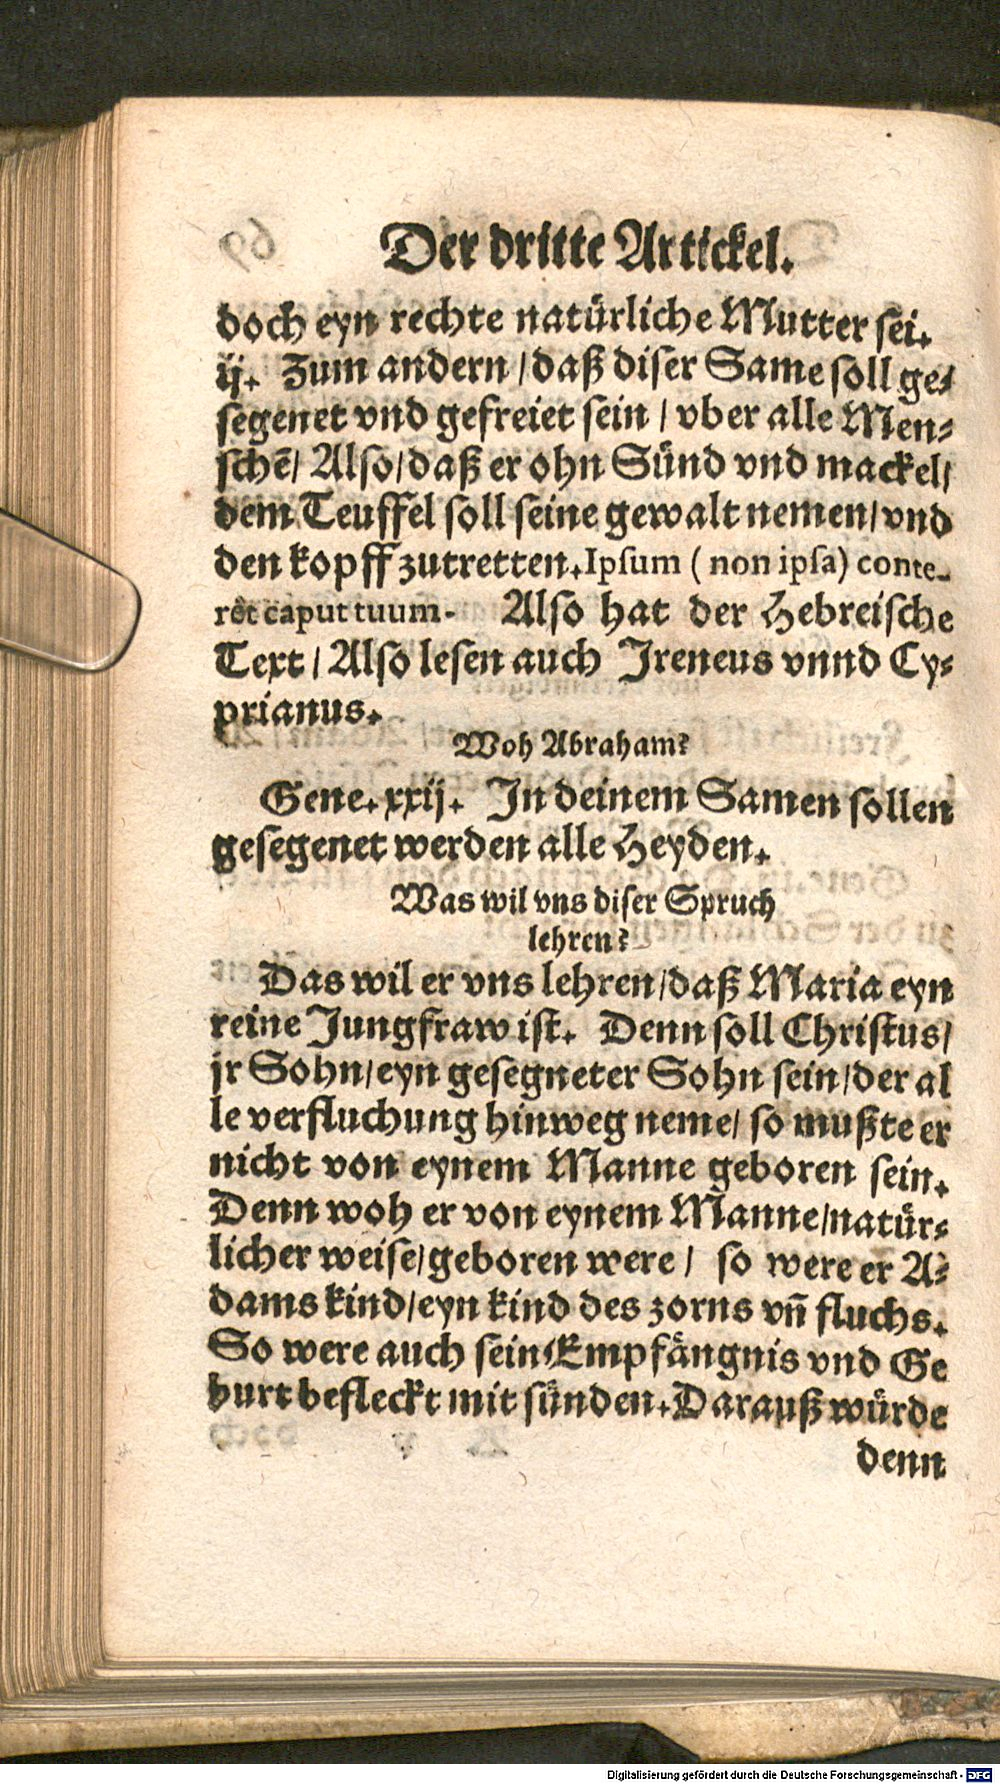 Der dritte Artickel.
doch eyn rechte natürliche Mutter sei.
ij. Zum andern / daß diser Same soll ge⸗
segenet vnd gefreiet sein / vber alle Men⸗
schē / Also / daß er ohn Sünd vnd mackel /
dem Teuffel soll seine gewalt nemen / vnd
den kopff zutretten. Ipsum ( non ipsa) conte⸗
ret caput tuum. Also hat der Hebreische
Text / Also lesen auch Jreneus vnnd Cy⸗
prianus.
Woh Abraham?
Gene. xxij. Jn deinem Samen sollen
gesegenet werden alle Heyden.
Was wil vns diser Spruch
lehren?
Das wil er vns lehren / daß Maria eyn
reine Jungfraw ist. Denn soll Christus /
jr Sohn / eyn gesegneter Sohn sein / der al
le verfluchung hinweg neme / so mußte er
nicht von eynem Manne geboren sein.
Denn woh er von eynem Manne / natür⸗
licher weise / geboren were / so were er A⸗
dams kind / eyn kind des zorns vñ fluchs.
So were auch sein Empfängnis vnd Ge
burt befleckt mit sünden. Darauß würde
denn
Digitalisierung gefördert durch die Deutsche Forschungsgemeinschaft - DFG